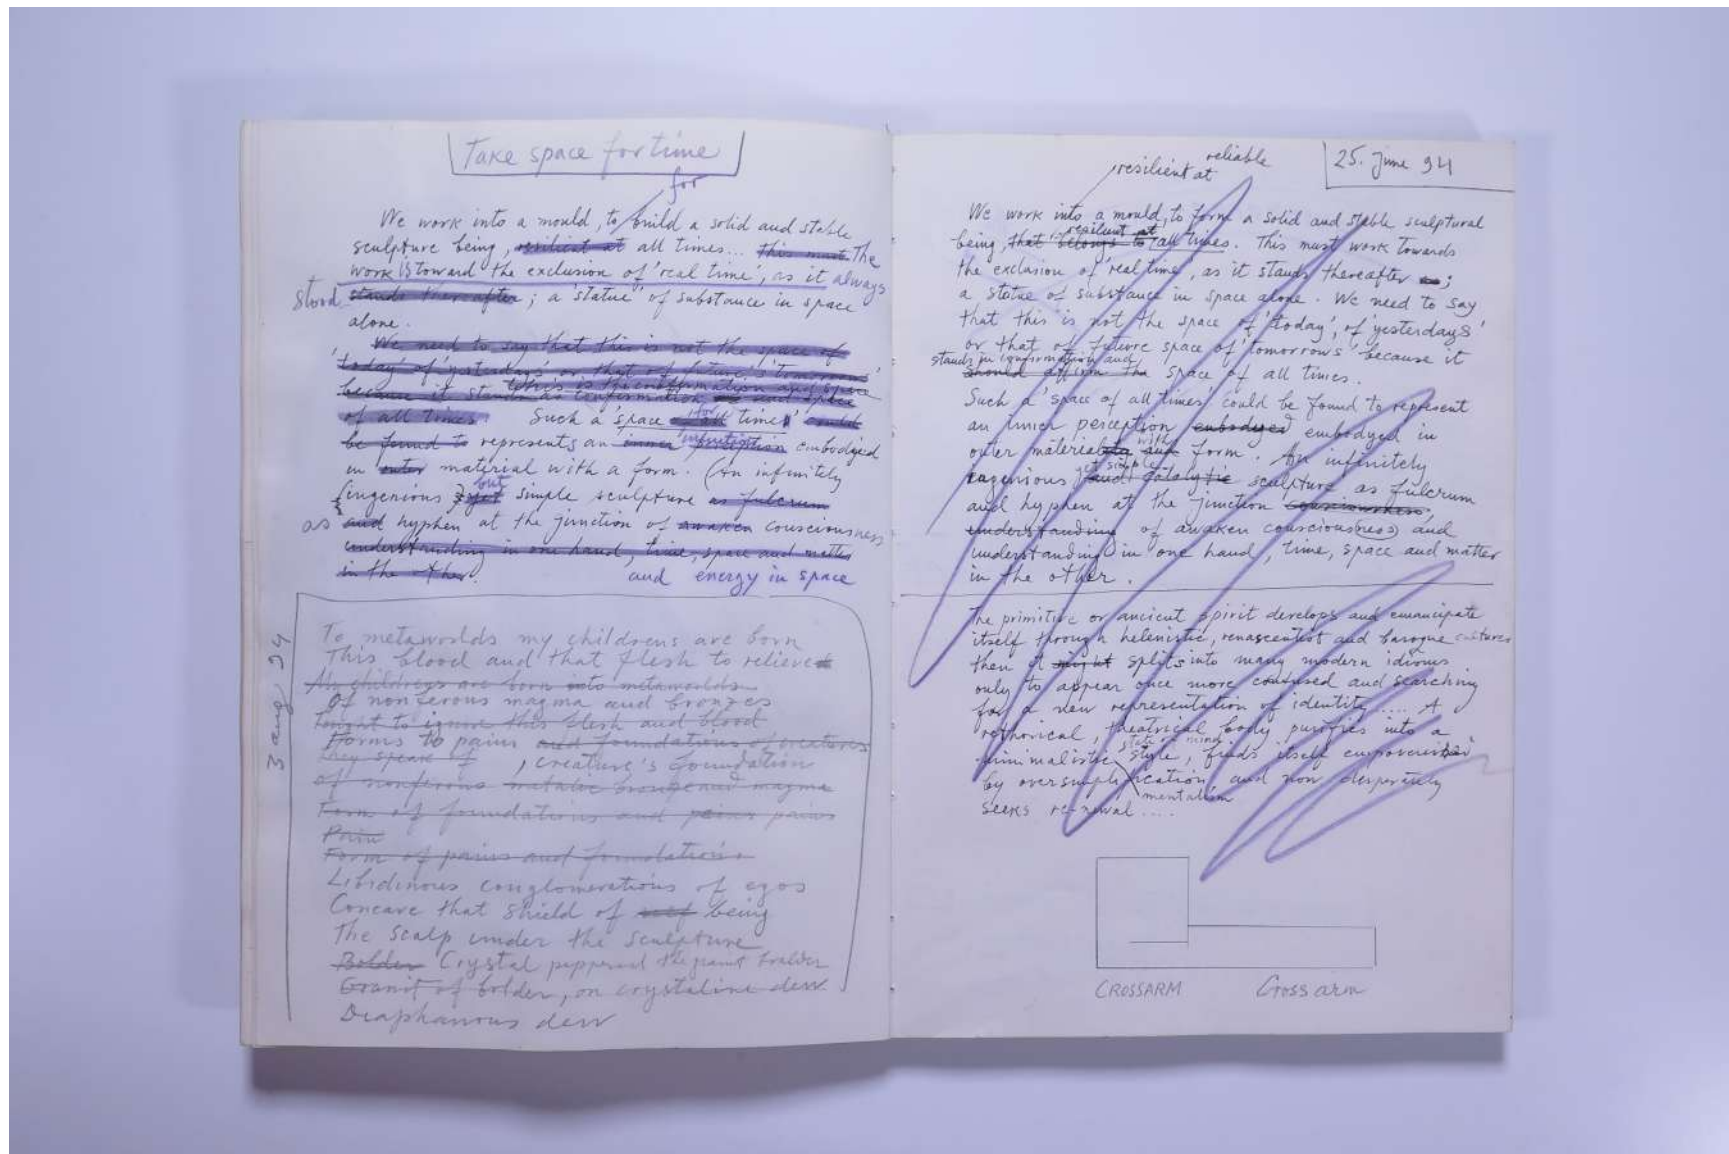 Take space for time
for
We work into a mould, to build a solid and stable
sculpture being, resilient at all times... this must The
work is toward the exclusion of 'real time', as it always
stood stands thereafter; a 'statue' of substance in space
alone.
We need to say that this is not the space of
'today' of 'yesterdays' or that of future, 'tomorrows'
this is the confirmation and space
because it stands as confirmation and space
of all times. Such a 'space for all times' could
be found to represents an inner perception embodyed
in outer material with a form. (An infinitely
but
{ingenious} yet simple sculpture as fulcrum
as and hyphen at the junction of awaken consciousness
understanding in one hand, time, space and matter
in the other. and energy in space
3 aug 94
To metaworlds my childrens are born
This blood and that flesh to relieve
My childrens are born into metaworlds
Of nonferous magma and bronzes
Tought to ignore this flesh and blood
Forms to pains and foundations of creatures
They speak of , creature's foundation
of nonferous metalic bronze and magma
Form of foundations and pains pains
Pain
Form of pains and foundations
Libidinous conglomerations of egos
Concave that shield of self being
The scalp under the sculpture
Bolder Crystal peppered the granit bolder
Granit of bolder, on crystaline dew
Diaphanous dew
25. June 94
reliable
resilient at
We work into a mould, to form a solid and stable sculptural
resilient at
being, that belongs to all times. This must work towards
the exclusion of 'real time', as it stands thereafter as;
a statue of substance in space alone. We need to say
that this is not the space of 'today', of 'yesterdays'
or that of future space of 'tomorrows' because it
stands in confirmation and
should affirm the space of all times.
Such a 'space of all times' could be found to represent
an inner perception embodyed embodyed in
with
outer material and form. An infinitely
yet simple
engenious and catalytic sculpture as fulcrum
and hyphen at the junction consciousness,
understanding of awaken conscious(ness) and
understanding in one hand, time, space and matter
in the other.
The primitive or ancient spirit develops and emancipate
itself through helenistic, renascentist and baroque cultures
then it might splits into many modern idioms
only to appear once more confused and searching
for a new representation of identity..... A
rethorical, theatrical body purifies into a
state of mind
minimalistic style, finds itself empoverished
by oversimplification and now desperatly
mentalism
seeks re-newal....
CROSSARM Crossarm